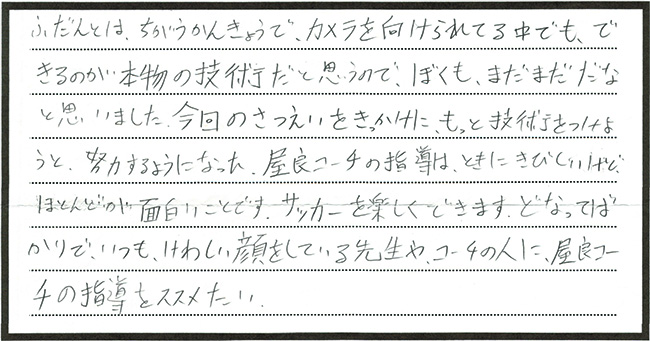 ふだんとは、ちがうかんきょうで、カメラを向けられてる中でも、で
きるのが本物の技術だと思うので、ぼくも、まだまだだな
と思いました。今回のさつえいをきっかけに、もっと技術をつけよ
うと、努力するようになった。屋良コーチの指導は、ときにきびしいけど、
ほとんどが面白いことです。サッカーを楽しくできます。どなってば
かりで、いつも、けわしい顔をしている先生や、コーチの人に、屋良コー
チの指導をススメたい。